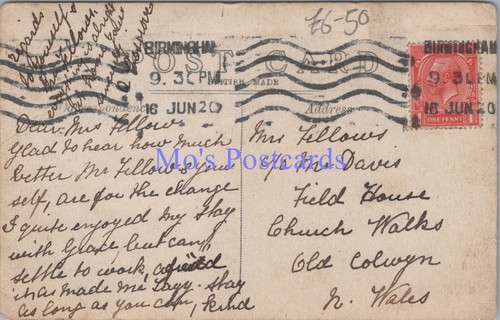 £6-50
BIRMINGHAM
9.31 PM
16 JUN 20
BIRMINGHAM
9.31 PM
16 JUN 20
POST CARD
BRITISH MADE
Correspondence
Address
ONE PENNY
Dear Mrs Fellow
Glad to hear how much
better Mr Fellows & your
self, are for the change
I quite enjoyed my stay
with Grace, but can't
settle to work,
it has made me lazy. Stay
as long as you can, kind
regards
Mrs Fellows
c/o Mr Davis
Field House
Church Walks
Old Colwyn
N. Wales
Mo's Postcards